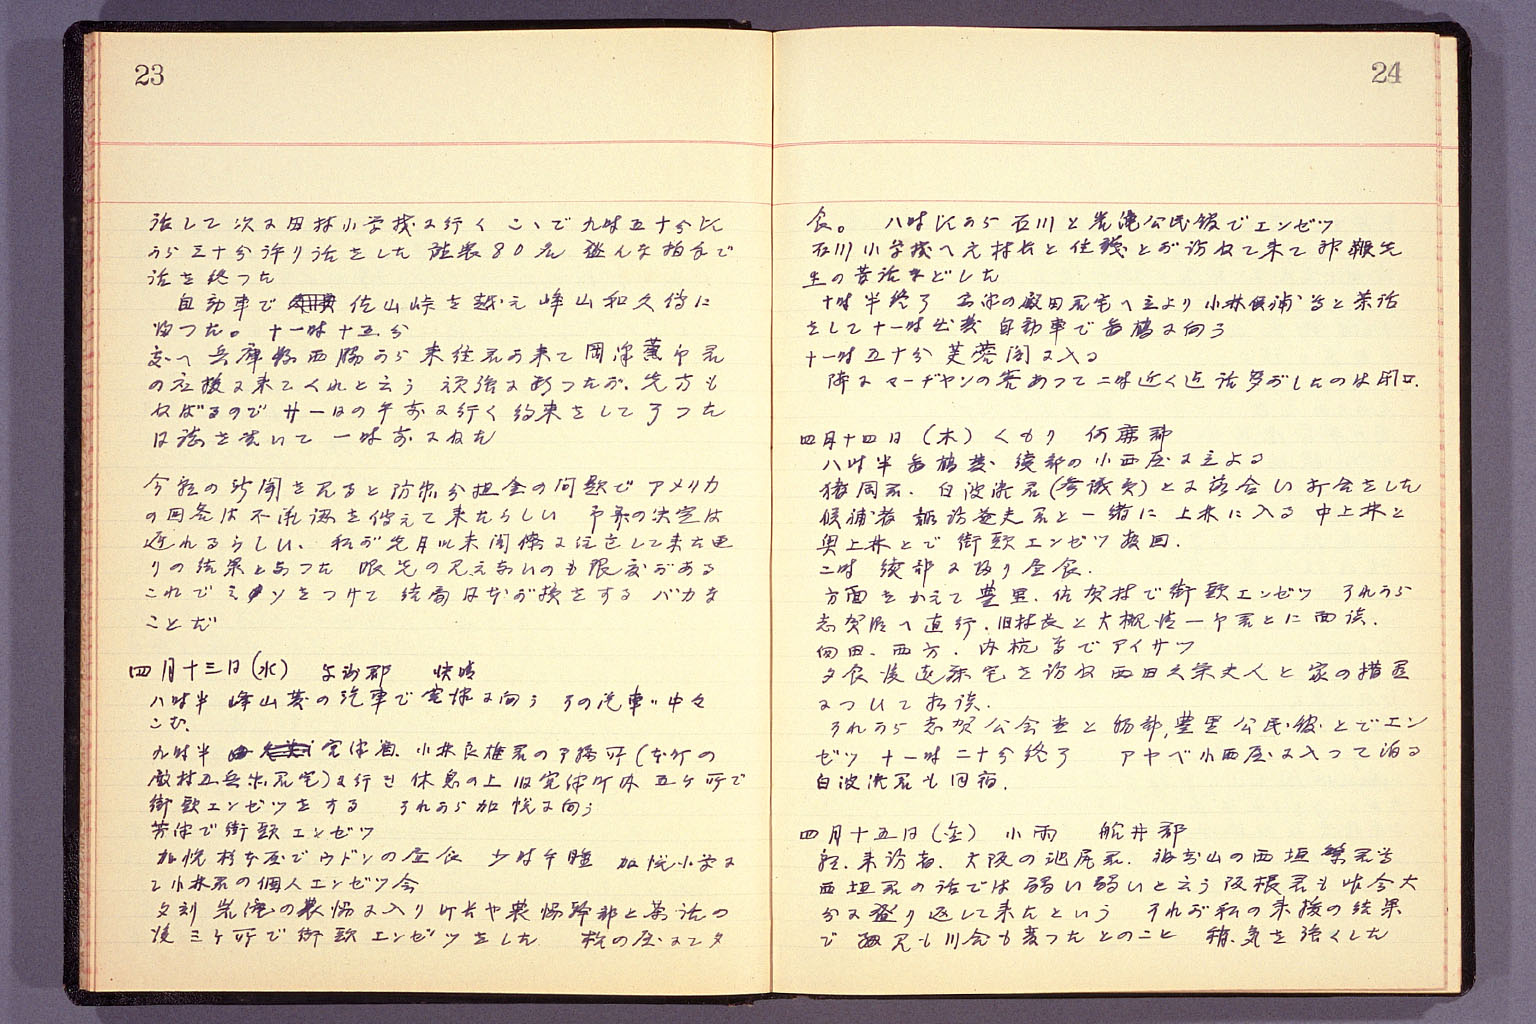 23
話して次に田村小学校に行く こゝで九時五十分比
から三十分許り話をした 聴衆80名 盛んな拍手で
話を終つた
自動車で 佐山峠を越え 峰山和久伝に
泊つた。 十一時十五分
夜へ兵庫県西脇から来住君が来て岡
の応援に来てくれと云う 頑強に断つたが、先方も
ねばるので 廿一日の午前に行く約束をして了つた
日誌を書いて 一時前にねた
今朝の新聞を見ると防衛分担金の問題でアメリカ
の回答は不承認を伝えて来たらしい 予算の決定は
遅れるらしい、 私が先月以来関係に注意して来た
りの結果となつた 眼先の見えないのも限度がある
これでミソをつけて結局は大損をする バカな
ことだ
四月十三日(水) 与謝郡 快晴
八時半 峰山発の汽車で宮津に向う その汽車中々
こむ、
九時半 宮津着、小林良雄君の事務所(本町の
君宅)に行き休息の上 旧宮津町内五ヶ所で
街頭エンゼツをする それから加悦に向う
で街頭エンゼツ
加悦杉本屋でウドンの昼食 少時午睡 加悦小学に
て小林君の個人エンゼツ会
夕刻 岩滝の に入り町長や農協幹部と茶話の
後 三ヶ所で街頭エンゼツをした の屋にて夕
24
食。 八時比から石川と岩滝公民館でエンゼツ
石川小学校へ元村長と住職とが訪ねて来て 先
生の昔話などした
十時半終了 宮津の殿田君宅へ立より 小林候補等と茶話
をして十一時出発 自動車で舞鶴に向う
十一時五十分 芙蓉閣に入る
隣にマーヂヤンの客あつて二時近く迄話声がしたのは閉口、
四月十四日(木) くもり 何鹿郡
八時半舞鶴発 綾部の小西屋に立よる
君、白波瀬君(参議員)とに落合い 打合をした
候補者 君と一緒に上林に入る 中上林と
奥上林とで街頭エンゼツ 数回、
二時 綾部に帰り昼食、
方面をかえて豊里、佐賀村で街頭エンゼツ それから
志賀郷へ直行、旧村長と大槻 君とに面談、
向田、西方、内杭等でアイサツ
夕食後遠藤宅を訪ね 西田 夫人と家の措置
について相談、
それから志賀公会堂と物部、豊里公民館とでエン
ゼツ 十一時二十分終了 アヤベ小西屋に入つて泊る
白波瀬君も同宿、
四月十五日(金) 小雨 船井郡
朝、来訪者、大阪の池尻君、福知山の西垣 君等
西垣君の話では弱い弱いと云う阪根君も昨今大
分に盛り返して来たという それが私の来援の結果
で も川合も変つたとのこと 稍、気を強くした